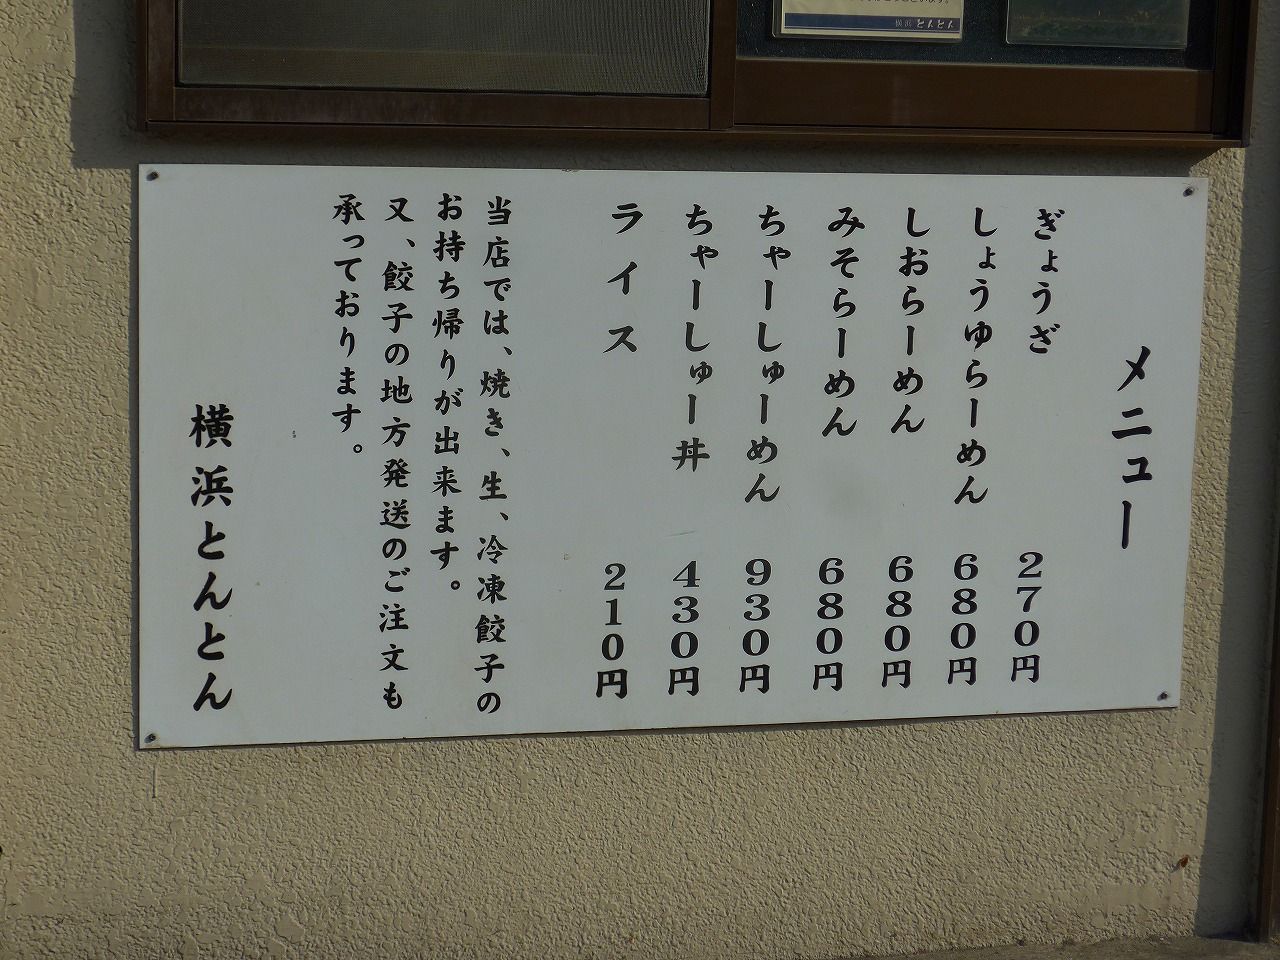 横浜 とんとん
メニュー
ぎょうざ 270円
しょうゆらーめん 680円
しおらーめん 680円
みそらーめん 680円
ちゃーしゅーめん 930円
ちゃーしゅー丼 430円
ライス 210円
当店では、焼き、生、冷凍餃子の
お持ち帰りが出来ます。
又、餃子の地方発送のご注文も
承っております。
横浜とんとん